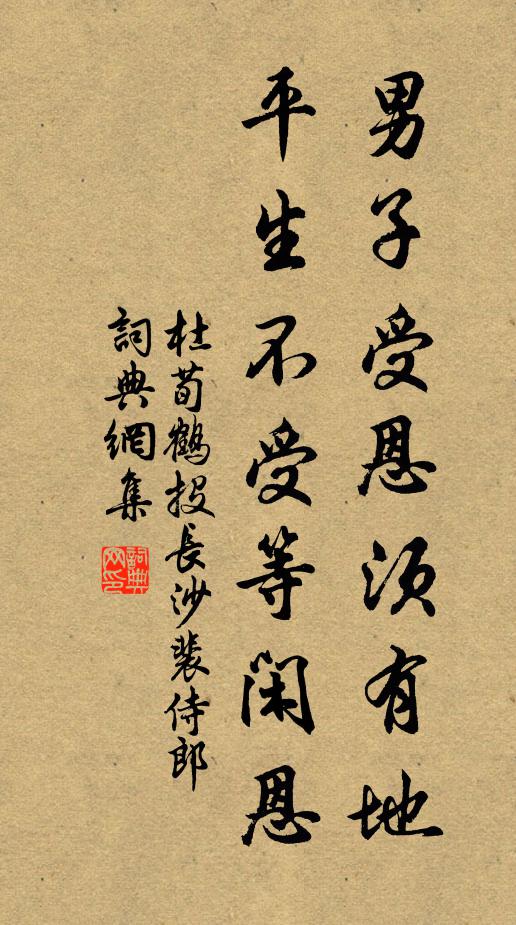 男子受恩須有地
平生不受等閑恩
杜荀鶴投長沙裴侍郎
詞典網集
詞典
网印